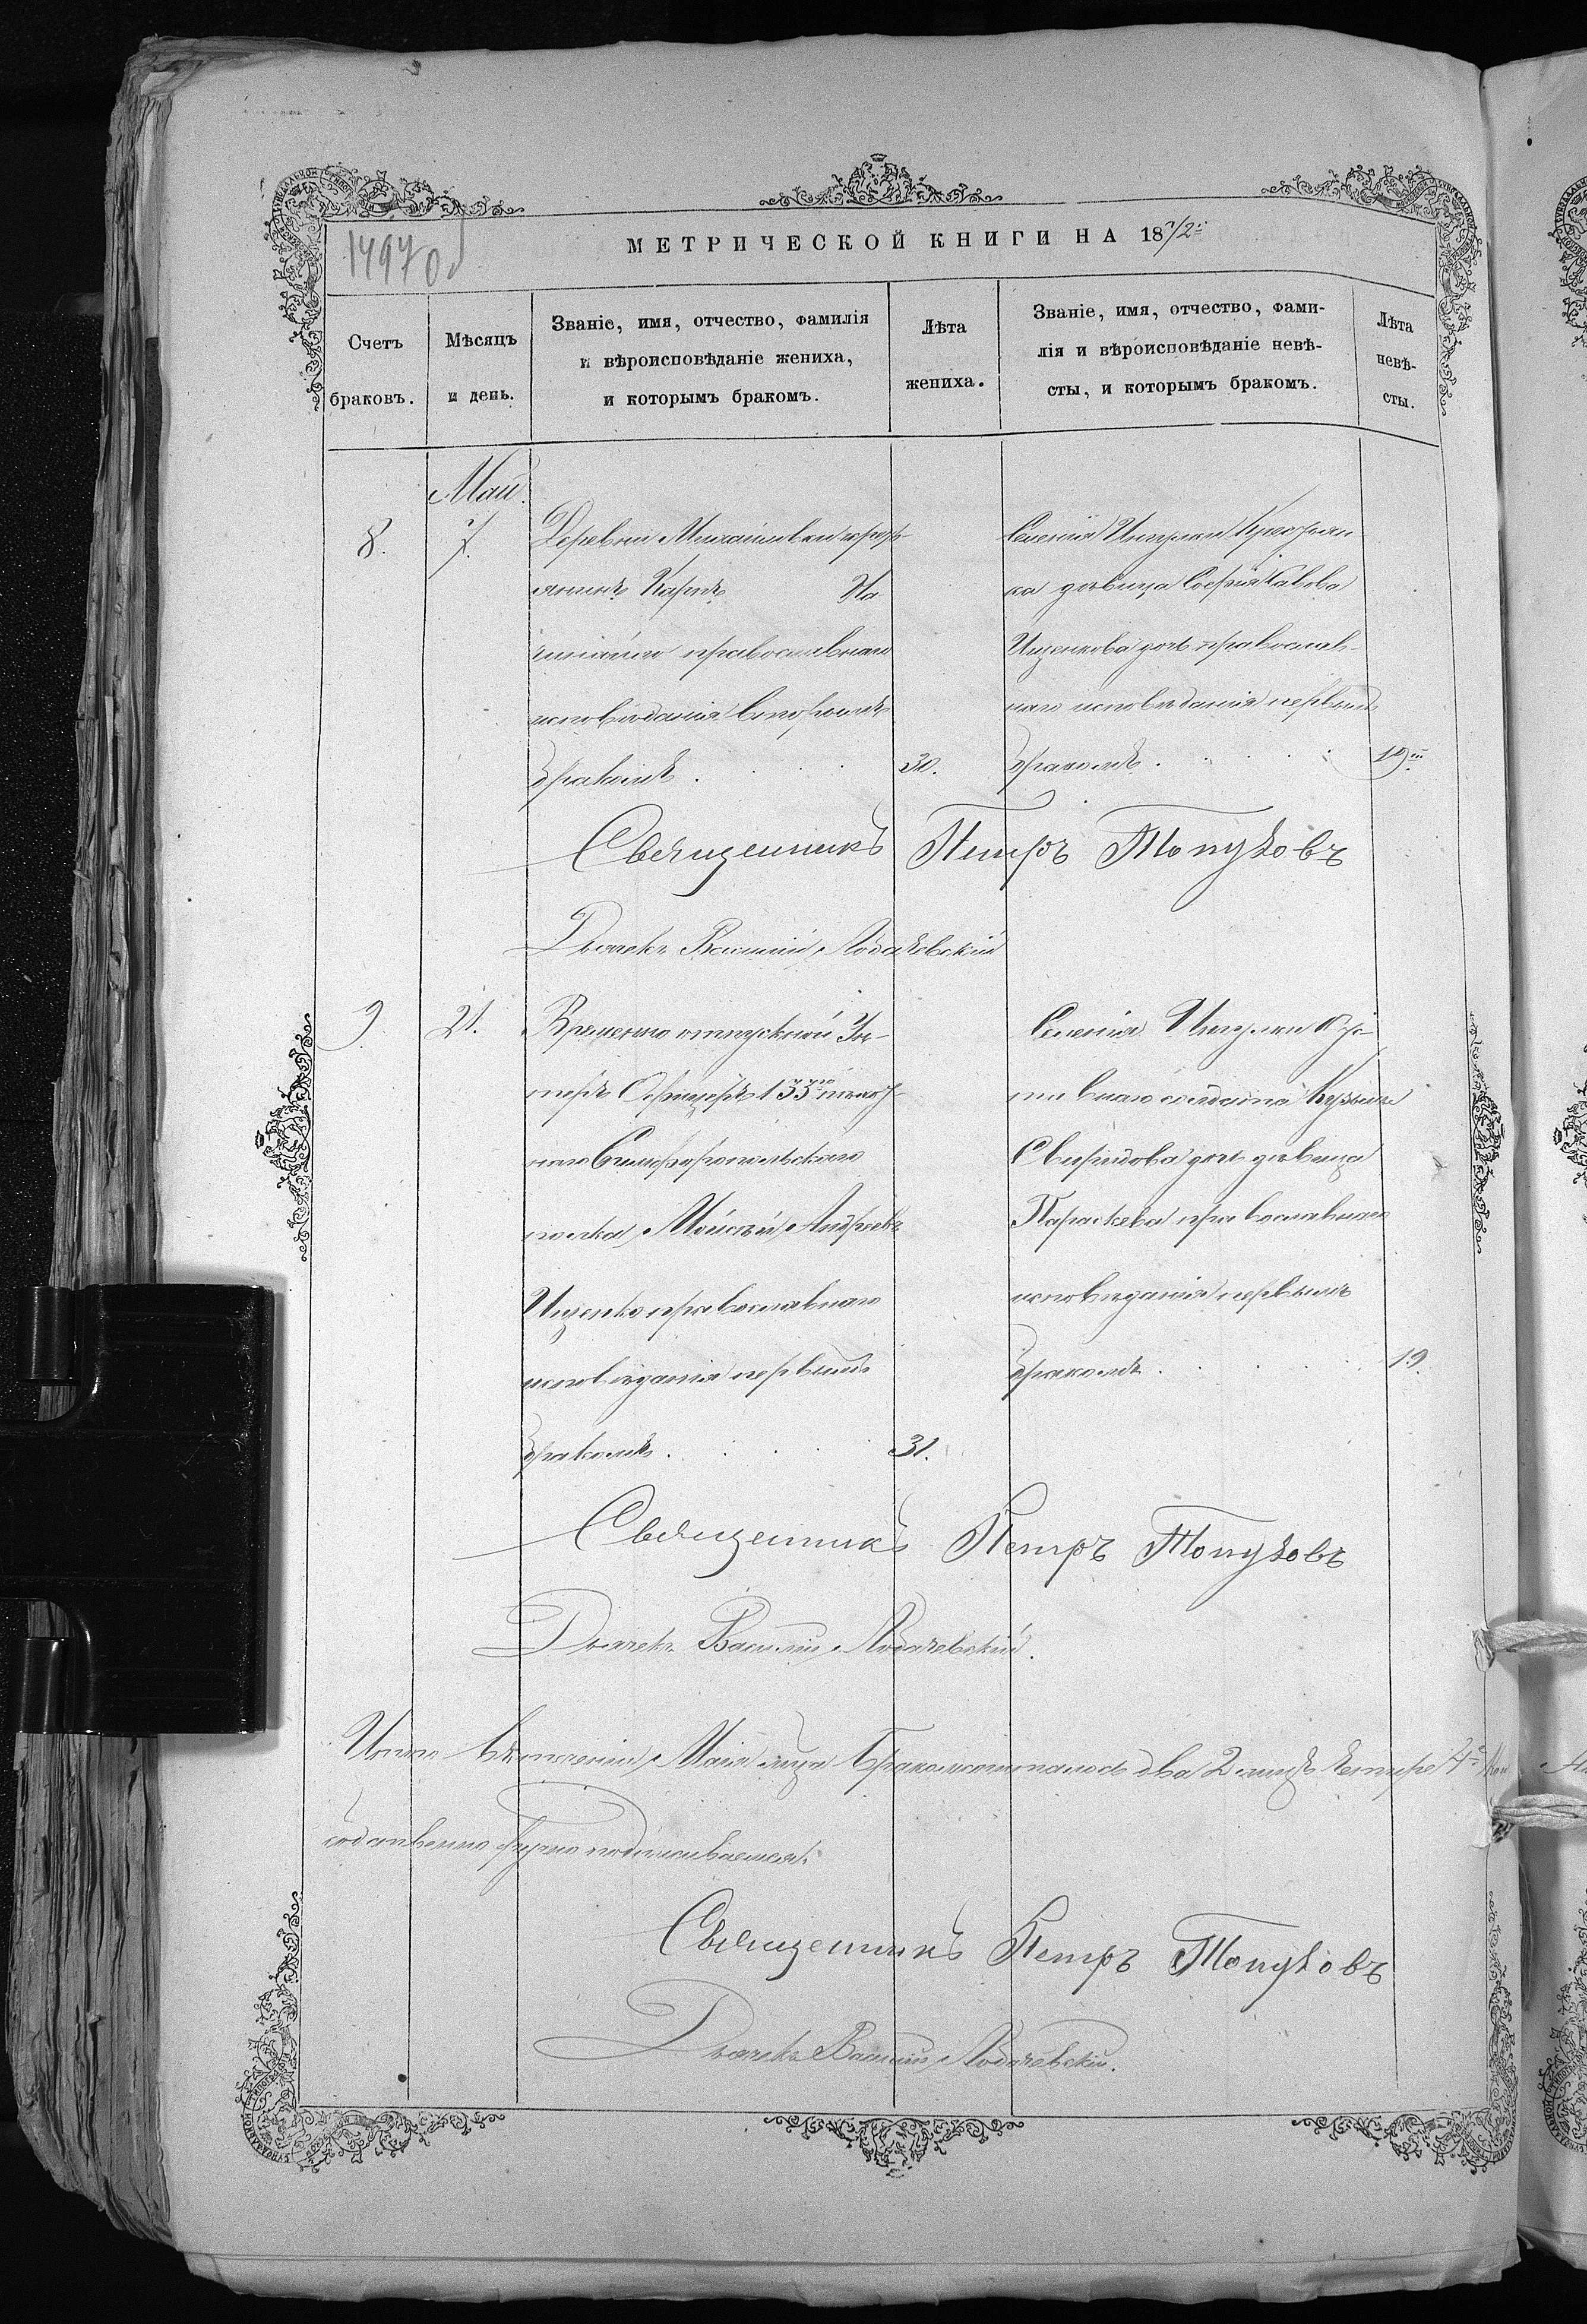 1497 об
МЕТРИЧЕСКОЙ КНИГИ НА 1872
Счетъ браковъ.
Мѣсяцъ и день.
Званіе, имя, отчество, фамилія
и вѣроисповѣданіе жениха,
и которымъ бракомъ.
Лѣта жениха.
Званіе, имя, отчество, фами-
лія и вѣроисповѣданіе невѣ-
сты, и которымъ бракомъ.
Лѣта невѣ-
сты.
Май.
8.
7.
Деревни Михайловки крест
янинъ Карпъ
православнаго
исповѣданія вторымъ
бракомъ.
30.
Селенія Ингулки Крестьян
ка дѣвица Софія Савова
Ищенкова дочь православ-
наго исповѣданія первымъ
бракомъ.
19
Священникъ Петръ Топузовъ
Дьячекъ Василій Лобачевскій
9
21.
Временно отпускной Ун-
теръ Офицеръ 133го пѣхот-
наго Симферопольскаго
полка Моисей Андреевъ
Ищенко православнаго
исповѣданія первымъ
бракомъ.
31.
Селенія Ингулки
солдата Кузьмы
Свиридова дочь дѣвица
Параскева православнаго
исповѣданія первымъ
бракомъ.
19
Священникъ Петръ Топузовъ
Дьячекъ Василій Лобачевскій.
Итого въ теченіи Маія м-ца бракомъ сочеталось два 2 лицъ четыре 4
собственно ручно подписываемся.
Священникъ Петръ Топузовъ
Дьячекъ Василій Лобачевскій.